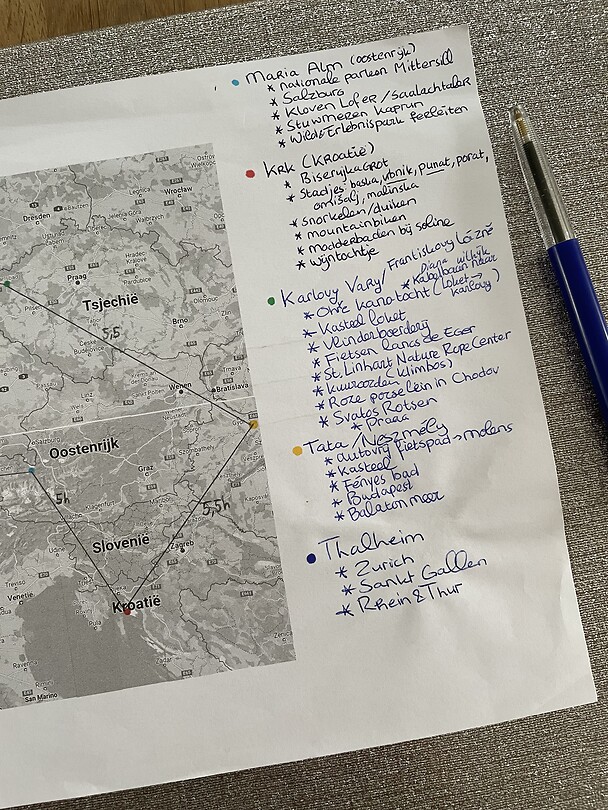 Maria Alm (oostenrijk)
* nationale parken Mittersill
* Salzburg
* Kloven Lofer / Saalachtaler
* Stuwmeren Kaprun
* Wilds Erlebnispark ferleiten
Krk (Kroatië)
* Biserujka GROT
* Stadjes: baska, vbnik, punat, porat,
omišalj, malinska
* snorkelen/duiken
* mountainbiken
* modderbaden bij soline
* wijntochtje
Karlovy Vary/ Frantiskovy Lázně
* Diana uitkijk
Kabelbaan
* Ohře kanotocht (loket →
Karlovy)
* Kasteel loket
* Vlinderboerderij
* Fietsen langs de Eger
* St. Linhart Nature Rope Center
* Kuuroorden (klimbos)
* Roze porselein in Chodov
* Svatos Rotsen
* Praag
Tata / Neszmély
* autovrij fietspad → molens
* Kasteel
* Fényes bad
* Budapest
* Balatonmeer
Thalheim
* Zurich
* Sankt Gallen
* Rhein & Thur
Dresden
Legnica
Wrocław
Praag
Hradec
Králové
Pardubice
Tsjechië
Olomouc
5,5
České
Budějovice
Brno
Linz
Wenen
Trnava
Bratislava
Salzburg
Oostenrijk
Szombathely
Graz
5h
5,5h
Slovenië
Udine
Zagreb
Treviso
Venetië
Rovinj
Pula
Kroatië
Ravenna
Rimini
San Marino
Zadar
Zenica